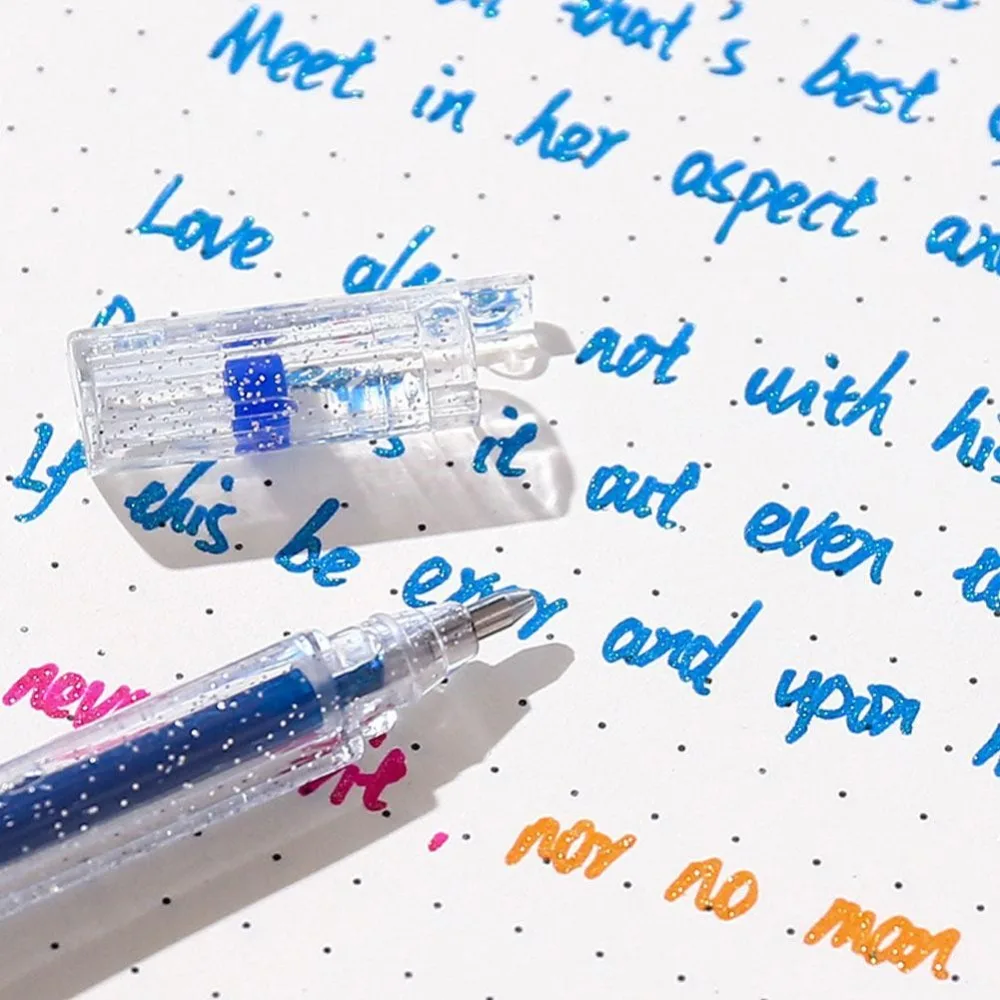 that's best
Meet in her aspect an
Love not with his
it out even
If this be error and upon
nor no man